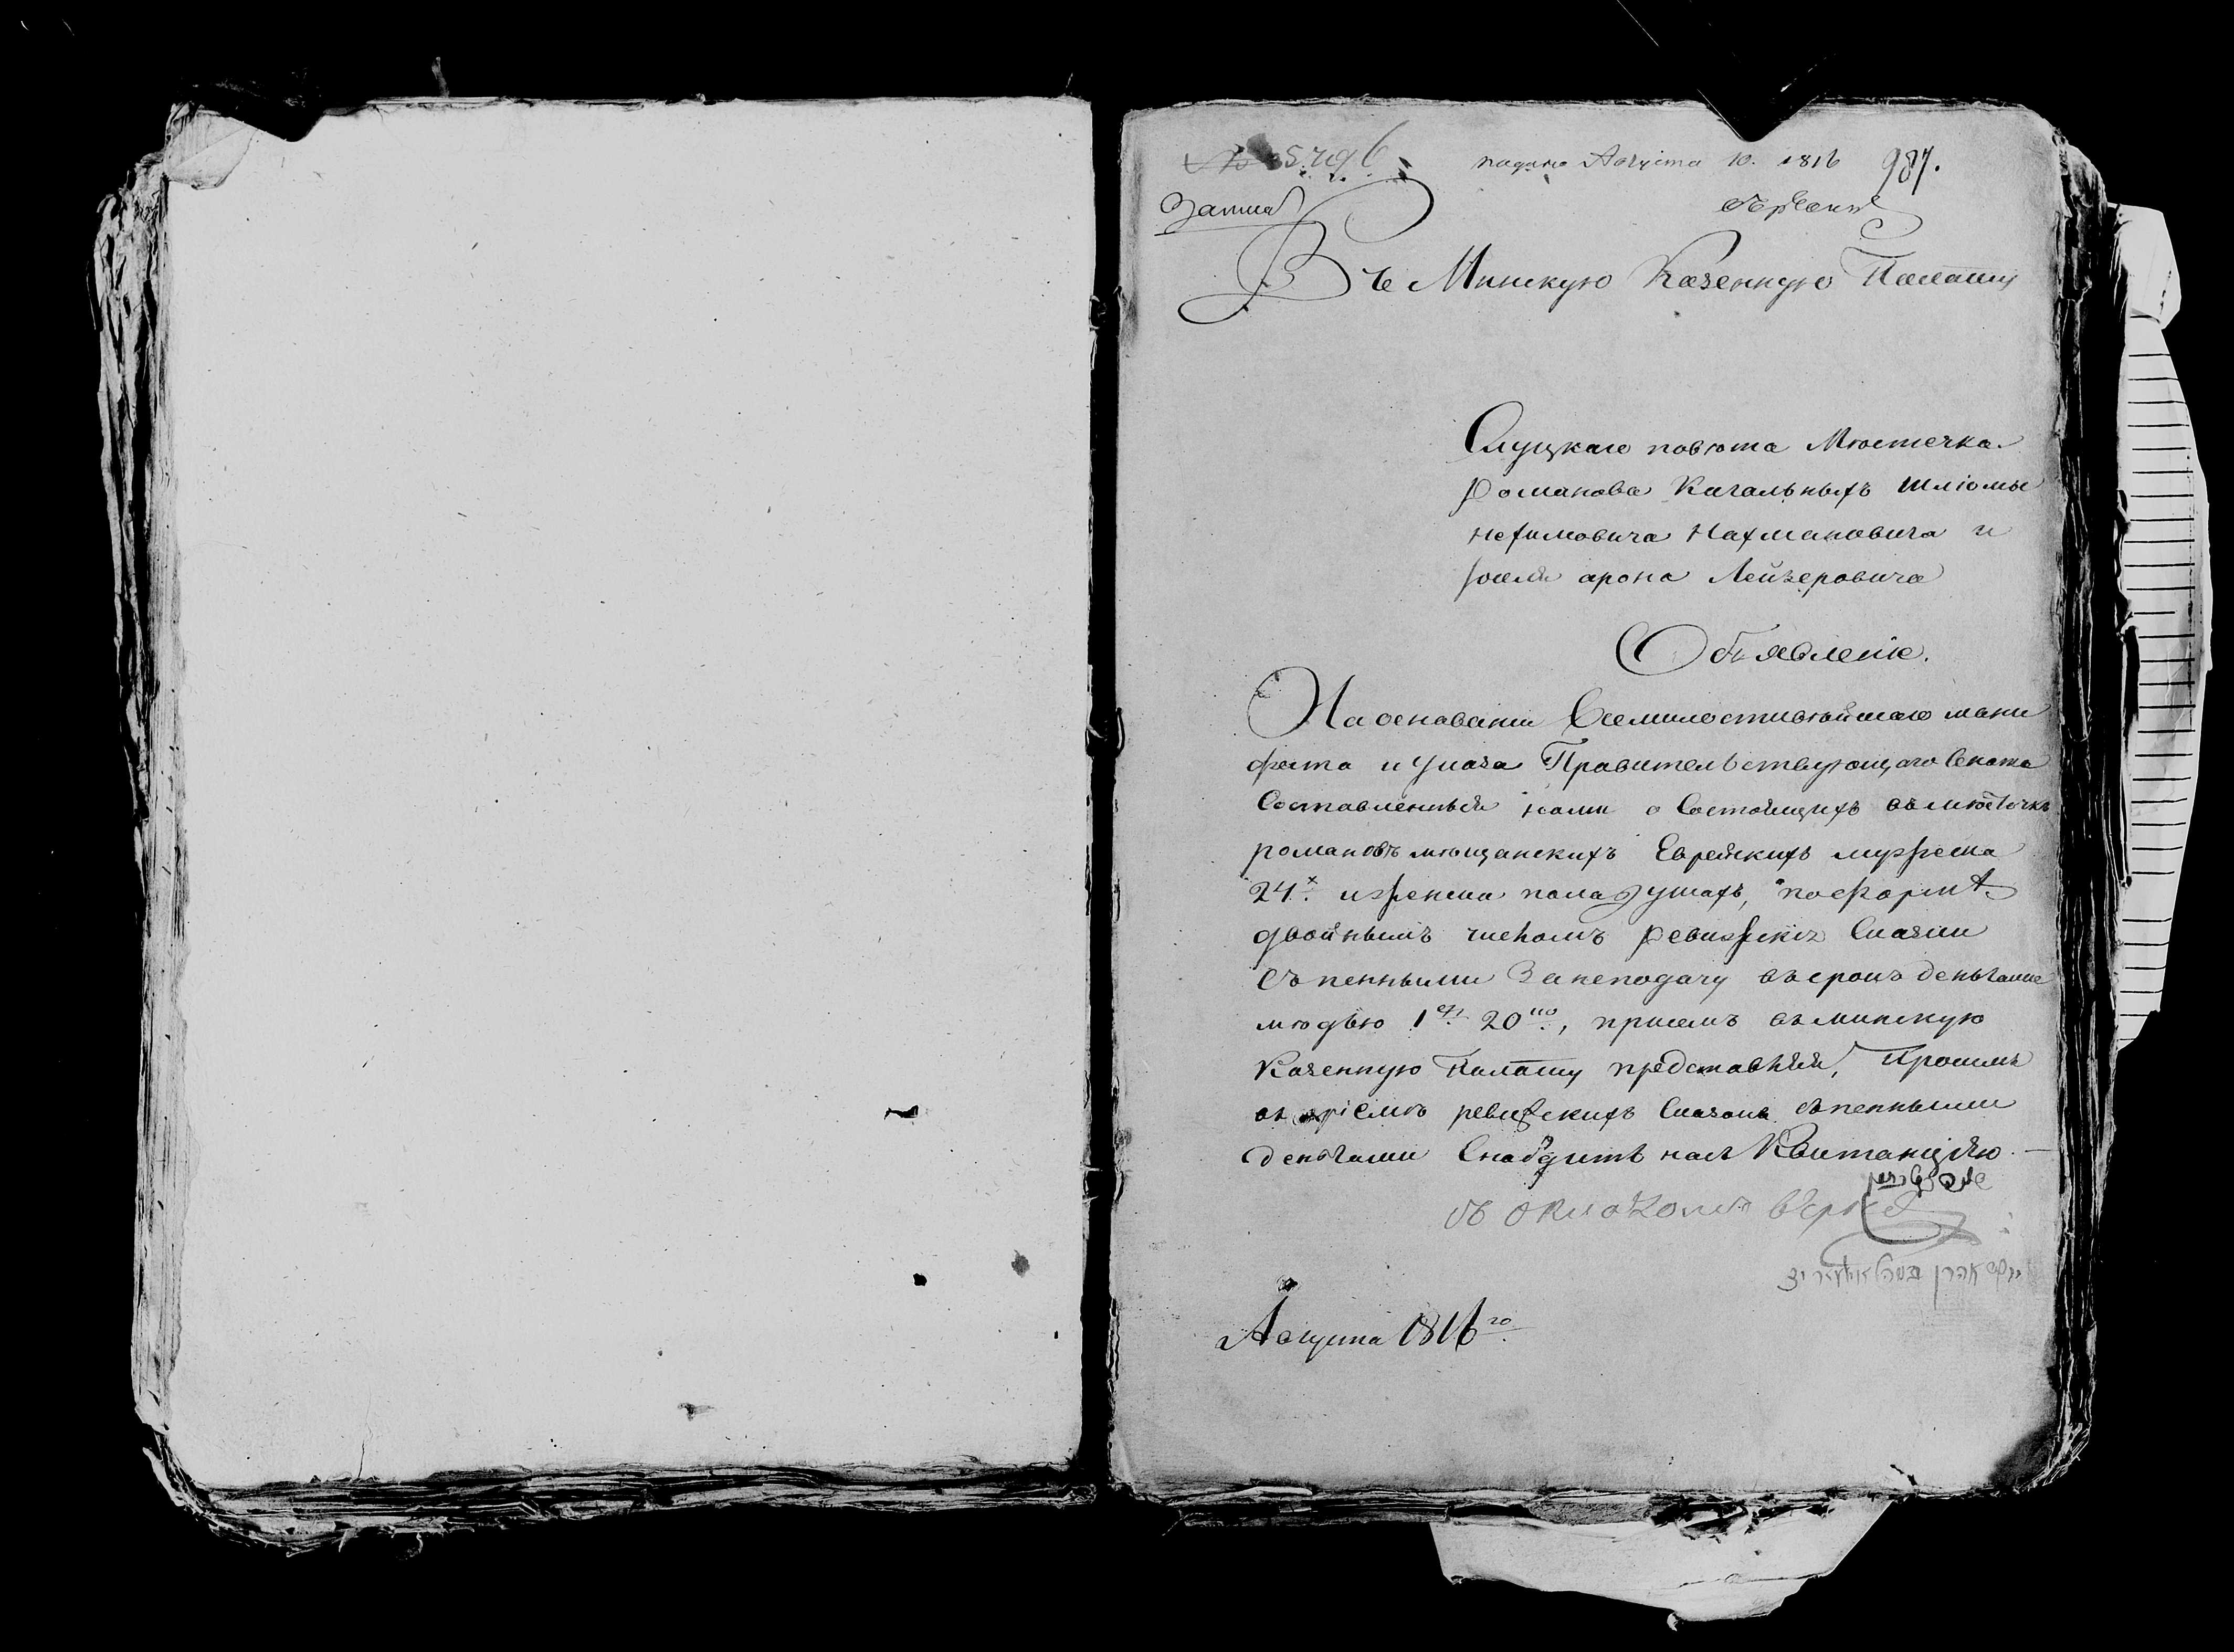 № 5796
подано Августа 10. 1816
987.
Въ Минскую Казенную Палату
Слуцкаго повѣта Мѣстечка
Романова Кагальныхъ Шліомы
Нахмановича и
арона Лейзеровича
Объявленіе.
На основаніи Всемилостивѣйшаго мани
феста и указа Правительствующаго Сената
Составленныя нами о Состоящихъ въ мѣстечкѣ
романовѣ мѣщанскихъ Еврейскихъ мужеска
24х. и женска пола душахъ, по формѣ
двойнымъ числомъ ревизскіе Сказки
Съ пенными За неподачу въ срокъ деньгами
мѣдью 1 20, при семъ въ минскую
Казенную Палату представляя, Просимъ
въ пріемѣ ревизскихъ Сказокъ съ пенными
деньгами Снабдить насъ Квитанціею. —
אהרן
Августа 1816го.